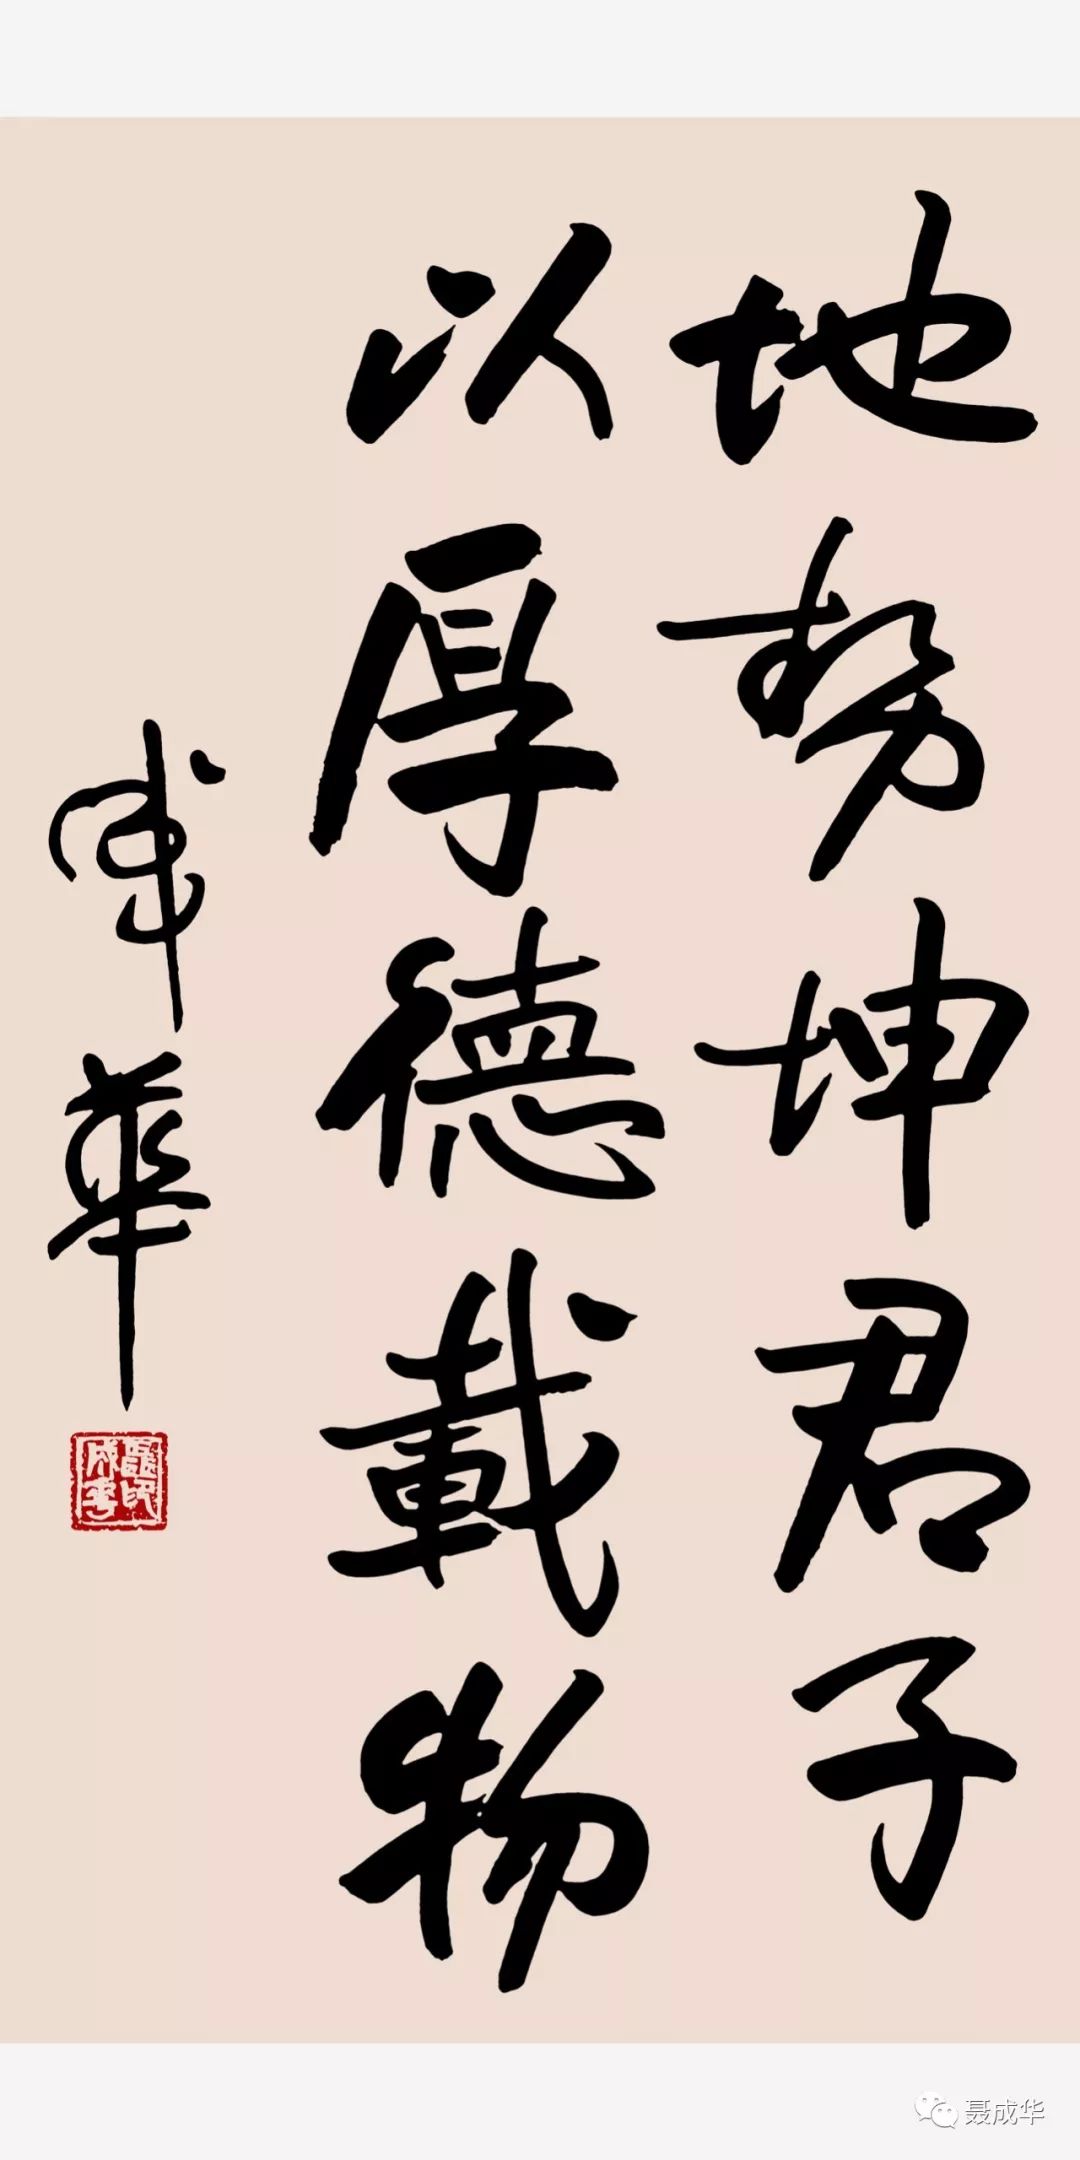 地势坤君子
以厚德載物
成華
聂成华印
聂成华